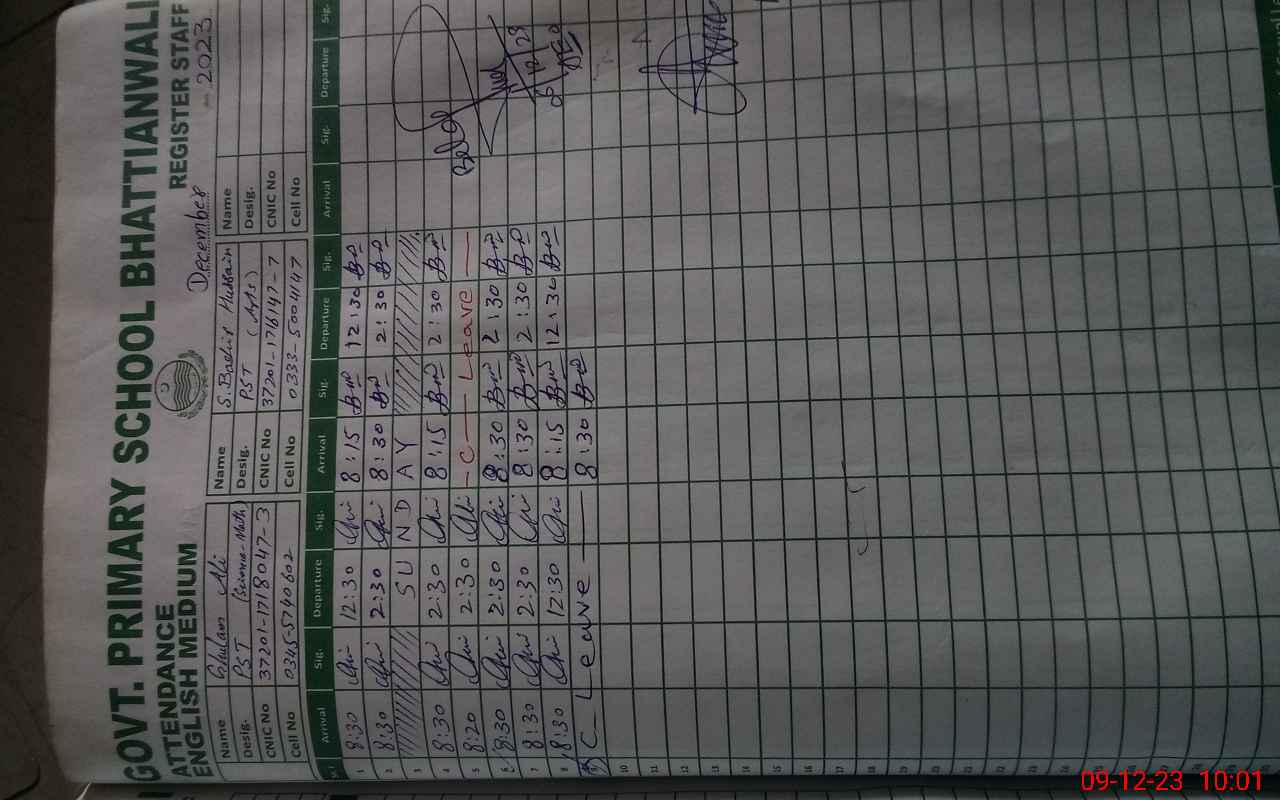 GOVT. PRIMARY SCHOOL BHATTIANWALI
ATTENDANCE REGISTER STAFF
ENGLISH MEDIUM December 2023
Name Ghulam Ali Name S. Bashir Hussain Name
Desig. PST (Science-Math) Desig. PST (Arts) Desig.
CNIC No 37201-1718047-3 CNIC No 37201-176147-7 CNIC No
Cell No 0345-5740602 Cell No 0333-5004147 Cell No
Arrival Sig. Departure Sig. Arrival Sig. Departure Sig. Arrival Sig. Departure Sig.
1 8:30 12:30 8:15 12:30
2 8:30 2:30 8:30 2:30
3 SUNDAY
4 8:30 2:30 8:15 2:30
5 8:20 2:30 C Leave
6 8:30 2:30 8:30 2:30
7 8:30 2:30 8:30 2:30
8 8:30 12:30 8:15 12:30
C Leave 8:30
10
11
12
13
14
15
16
17
18
19
20
21
22
23
24
25
09-12-23 10:01